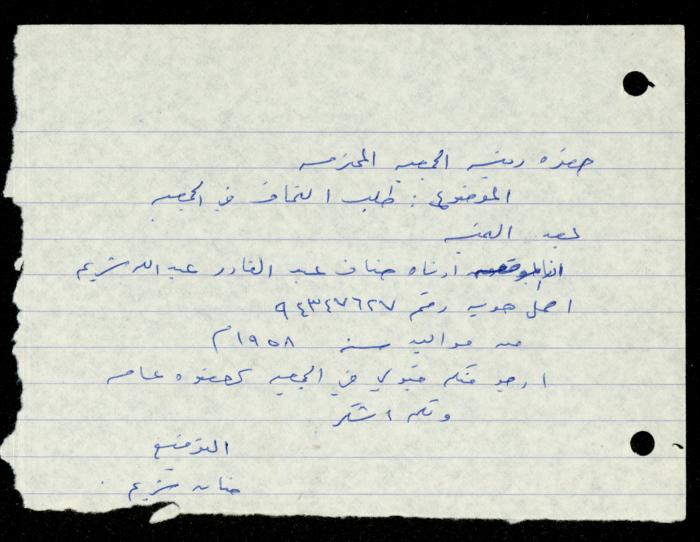 حضرة رئيسة الجمعيه المحترمه
الموضوع : طلب التحاق في الجمعيه
بعد التحيه
انا الموقعه ادناه حنان عبد القادر عبد الله شريم
احمل هويه رقم ٩٤٣٤٧٦٢٧
من مواليد سنه ١٩٥٨م
ارجو منكم قبولي في الجمعيه كعضوه عامه
ولكم الشكر
التوقيع
حنان شريم